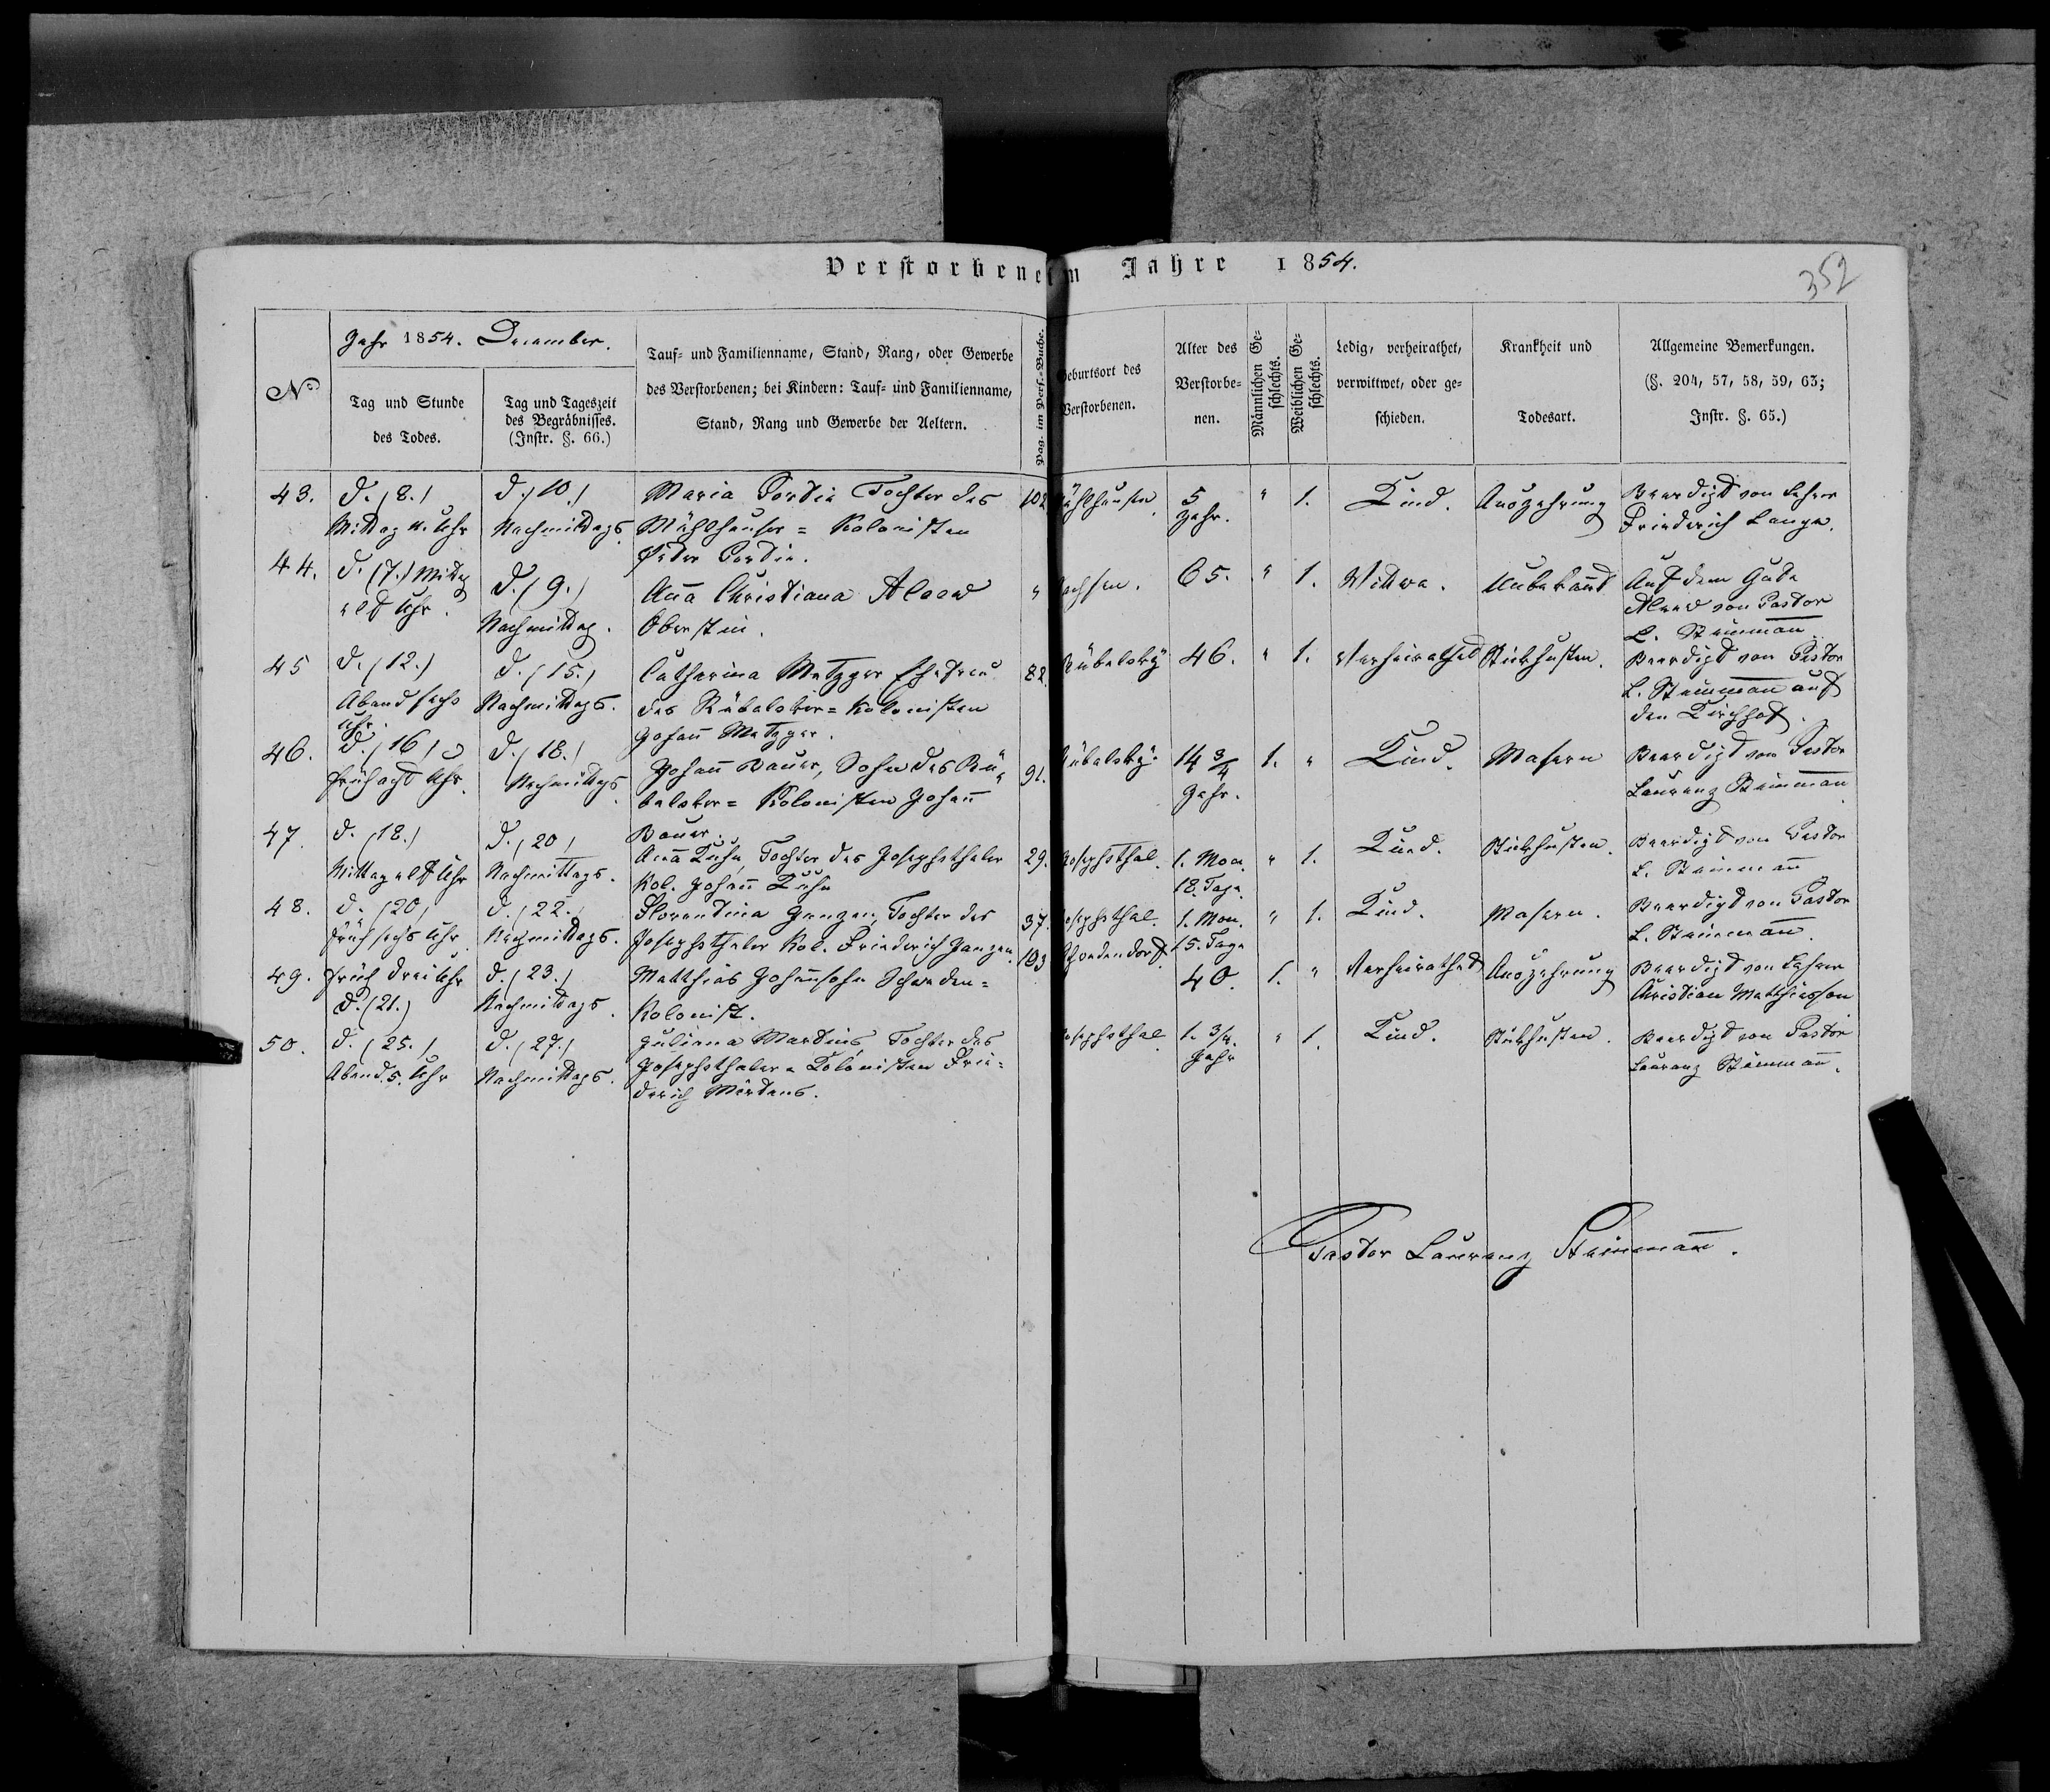 Verstorbene im Jahre 1854.
352
No
Jahr 1854. December.
Tag und Stunde
des Todes.
Tag und Tageszeit
des Begräbnisses.
(Instr. §. 66.)
Tauf= und Familienname, Stand, Rang, oder Gewerbe
des Verstorbenen; bei Kindern: Tauf= und Familienname,
Stand, Rang und Gewerbe der Aeltern.
Pag. im Pers.=Buche.
Geburtsort des
Verstorbenen.
Alter des
Verstorbe=
nen.
Männlichen Ge=
schlechts.
Weiblichen Ge=
schlechts.
Ledig, verheirathet,
verwittwet, oder ge=
schieden.
Krankheit und
Todesart.
Allgemeine Bemerkungen.
(§. 204, 57, 58, 59, 63;
Instr. §. 65.)
43.
d. (8.)
Mittag 11. Uhr
d. (10.)
Nachmittags.
Maria Tochter des
Mühlhauser= Kolonisten
Peter
102
Mühlhausen.
5
Jahr.
" 1.
Kind.
Auszehrung
Beerdigt von Lehrer
Friederich Lange.
44.
d. (7.) Mittag
elf Uhr.
d. (9.)
Nachmittag.
Anna Christiana
Oberstin.
"
Sachsen.
65.
" 1.
Wittwe.
Unbekannt
Auf dem Gute
von Pastor
L. Steinmann
45
d. (12.)
Abend sechs
Uhr.
d. (15.)
Nachmittags.
Catharina Metzger Ehefrau
des Rübalsker= Kolonisten
Johann Metzger.
82.
Rübalsky
46.
" 1.
Verheirathet
Stickhusten.
Beerdigt von Pastor
L. Steinmann auf
den Kirchhof.
46.
d. (16.)
früh acht Uhr.
d. (18.)
Nachmittags.
Johann Bauer, Sohn des Rü=
balsker= Kolonisten Johann
Bauer.
91.
Rübalsky.
14 3/4
Jahr.
1. "
Kind.
Masern
Beerdigt von Pastor
Laurenz Steinmann
47.
d. (18.)
Mittag elf Uhr
d. (20)
Nachmittags.
Anna Kuhn, Tochter des Josephsthaler
Kol. Johann Kuhn
29.
Josephsthal.
1. Mon.
18. Tage.
" 1.
Kind.
Stickhusten.
Beerdigt von Pastor
L. Steinmann
48.
d. (20)
früh sechs Uhr.
d. (22.)
Nachmittags.
Florentina Janzen, Tochter des
Josephsthaler Kol. Friederich Janzen.
37.
Josephsthal.
1. Mon.
15. Tage
" 1.
Kind.
Masern.
Beerdigt von Pastor
L. Steinmann.
49.
früh drei Uhr
d. (21.)
d. (23.)
Nachmittags.
Matthias Johannsohn Schweden=
Kolonist.
193
Schwedendorf.
40.
1. "
Verheirathet
Auszehrung
Beerdigt von Lehrer
Christian Matthiasson
50.
d. (25.)
Abend. 5. Uhr
d. (27.)
Nachmittags.
Juliana Martins, Tochter des
Josephsthaler= Kolonisten Frie=
derich Märtens.
Josephsthal
1. 3/4.
Jahr
" 1.
Kind.
Stickhusten.
Beerdigt von Pastor
Laurenz Steinmann.
Pastor Laurenz Steinmann.